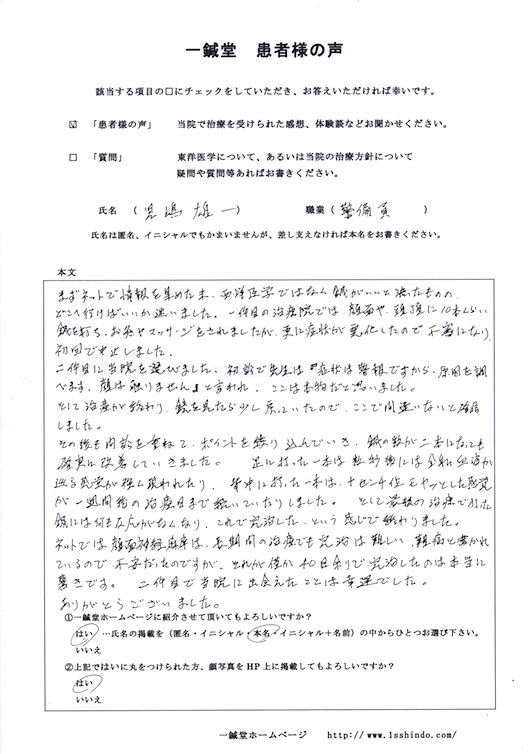 一鍼堂 患者様の声
該当する項目の□にチェックをしていただき、お答えいただければ幸いです。
☑ 「患者様の声」 当院で治療を受けられた感想、体験談などお聞かせください。
□ 「質問」 東洋医学について、あるいは当院の治療方針について
疑問や質問等あればお書きください。
氏名 ( 児嶋 雄一 ) 職業 ( 警備員 )
氏名は匿名、イニシャルでもかまいませんが、差し支えなければ本名をお書きください。
本文
まずネットで情報を集めた末、西洋医学ではなく鍼がいいと決ったものの、
どこへ行けばいいか迷いました。一件目の治療院では、顔面や、頭頂に10本くらい
鍼を打ち、お灸やマッサージをされましたが、更に症状が悪化したので不審になり、
初回で中止しました。
二件目に当院を選びました。初診で先生は『症状は警報ですから、原因を調
べます。顔は触りません』と言われ、ここは本物だと思いました。
そして治療が終わり、鏡を見たら少し戻っていたので、ここで間違いないと確信
しました。
その後も問診を重ねて、ポイントを絞り込んでいき、鍼の数が二本になっても
確実に改善していきました。 足に打った一本は数秒後には全身に血液が
巡る感覚が強く現われたり、背中に打った一本は、十センチ位モヤッとした感覚
が一週間後の治療日まで続いていたりしました。 そして最後の治療で打た
鍼には何も反応がなくなり、これで完治した、という感じで終わりました。
ネットでは顔面神経麻痺は、長期間の治療でも完治は難しい、難病と書かれ
ているので不安だったのですが、それが僅か40日余りで完治したのは本当に
驚きです。 二件目で当院に出会えたことは幸運でした。
ありがとうございました。
①一鍼堂ホームページに紹介させて頂いてもよろしいですか?
はい …氏名の掲載を (匿名・イニシャル・本名・イニシャル+名前) の中からひとつお選び下さい。
いいえ
②上記ではいに丸をつけられた方、顔写真をHP上に掲載してもよろしいですか?
はい
いいえ
一鍼堂ホームページ http://www.1sshindo.com/